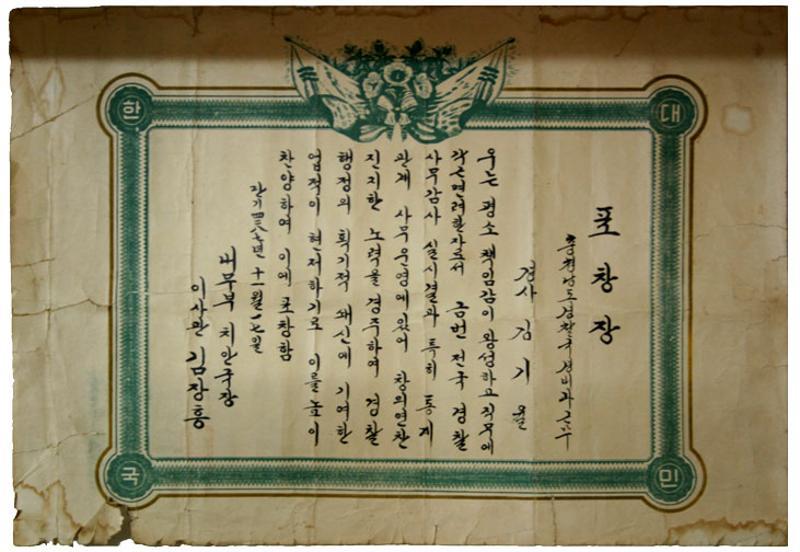 대
한
민
국
표창장
충청남도경찰국 경비과 근무
경사 김 기
우는 평소 책임감이 왕성하고 직무에
각근면려한자로서 금번 전국 경찰
사무감사 실시결과 특히 통계
관계 사무운영에 있어 창의연찬
진지한 노력을 경주하여 경찰
행정의 획기적 쇄신에 기여한
업적이 현저하기로 이를 높이
찬양하여 이에 표창함
단기四二八七년 十一월 一七일
내무부 치안국장
이사관 김장흥